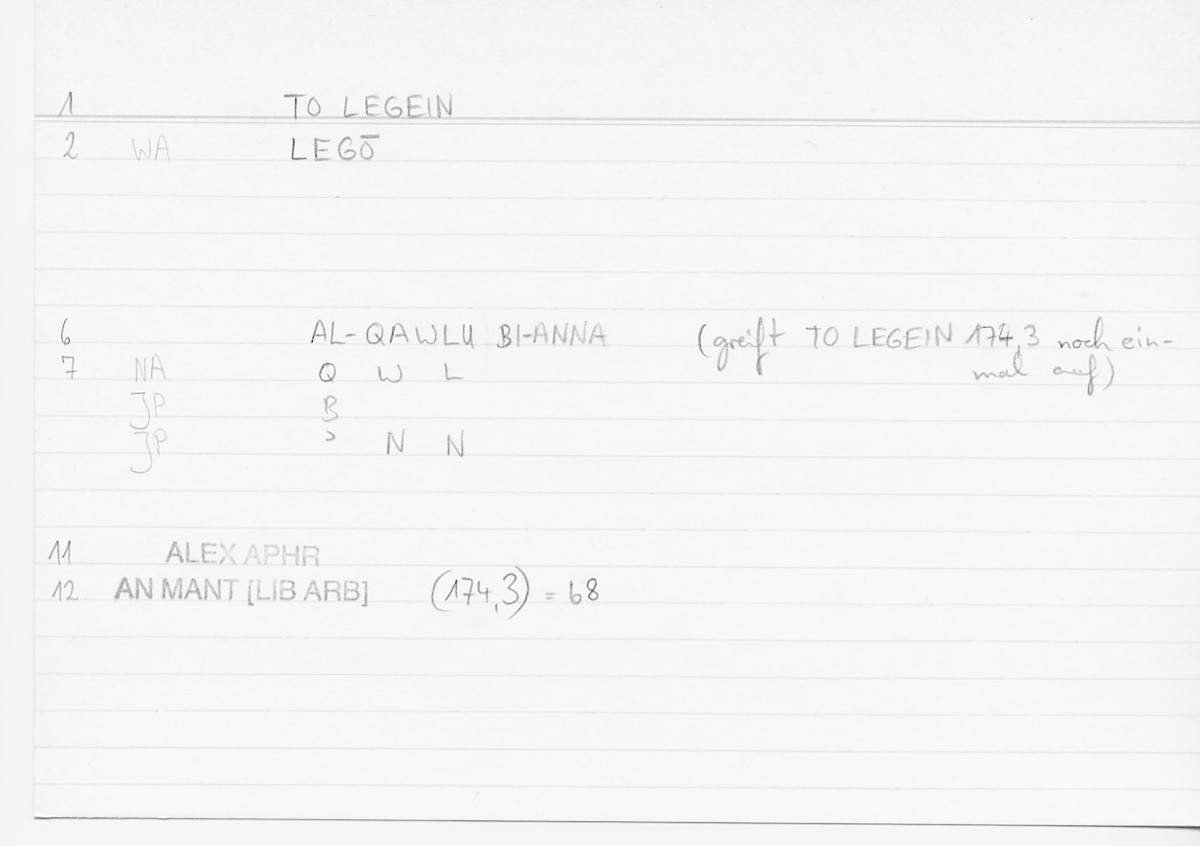 1 TO LEGEIN
2 WA LEGŌ
6 AL-QAWLU BI-ANNA (greift TO LEGEIN 174,3 noch ein-
7 NA Q W L mal auf)
JP B
JP ʾ N N
11 ALEX APHR
12 AN MANT [LIB ARB] (174,3) = 68